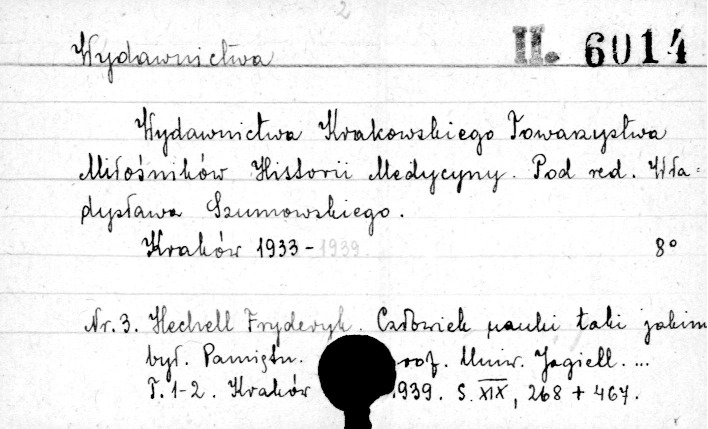 2
Wydawnictwa II. 6014
Wydawnictwa Krakowskiego Towarzystwa
Miłośników Historii Medycyny. Pod red. Wła-
dysława Szumowskiego.
Kraków 1933-1939. 8°
Nr. 3. Hechell Fryderyk. Człowiek nauki taki jakim
był. Pamiętn. prof. Uniw. Jagiell. ...
T. 1-2. Kraków 1939. S. XIX, 268 + 467.